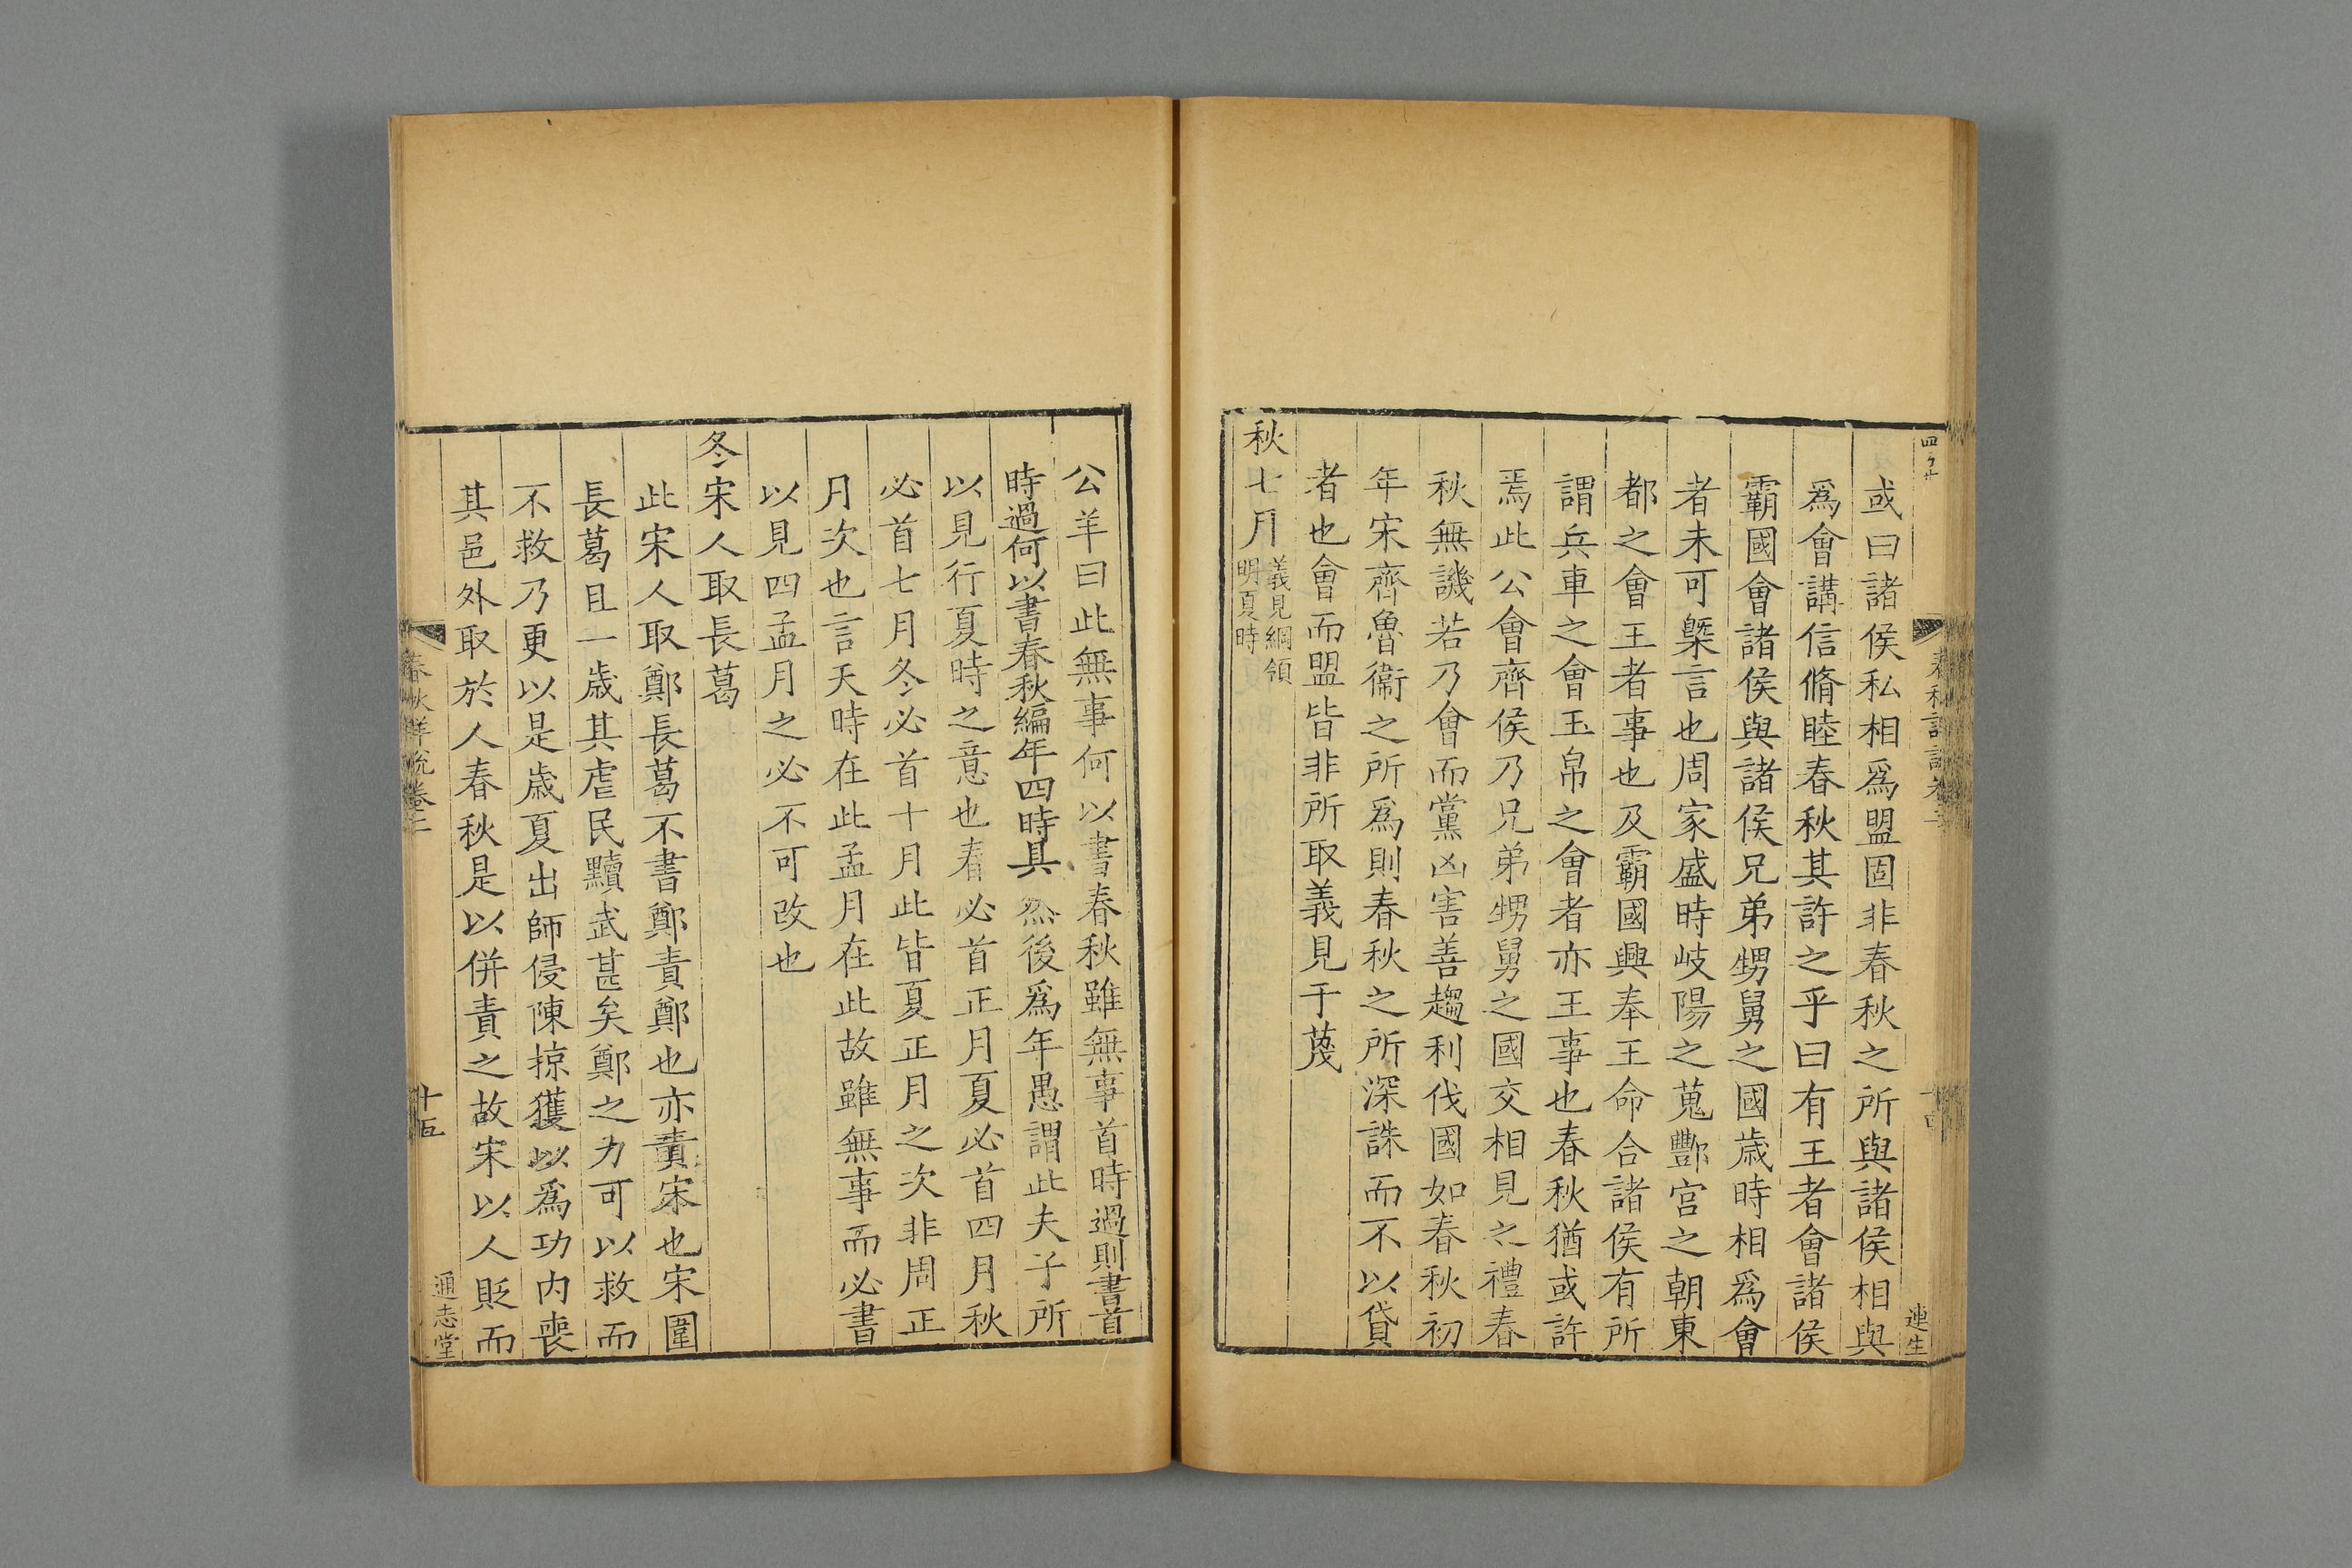 或曰諸侯私相爲盟固非春秋之所與諸侯相與
爲會講信脩睦春秋其許之乎曰有王者會諸侯
霸國會諸侯與諸侯兄弟甥舅之國歲時相爲會
者未可槩言也周家盛時岐陽之蒐酆宮之朝東
都之會王者事也及霸國興奉王命合諸侯有所
謂兵車之會玉帛之會者亦王事也春秋猶或許
焉此公會齊侯乃兄弟甥舅之國交相見之禮春
秋無譏若乃會而黨凶害善趨利伐國如春秋初
年宋齊魯衞之所爲則春秋之所深誅而不以貸
者也會而盟皆非所取義見于蔑
秋七月義見綱領
明夏時
連生
公羊曰此無事何以書春秋雖無事首時過則書首
時過何以書春秋編年四時具然後爲年愚謂此夫子所
以見行夏時之意也春必首正月夏必首四月秋
必首七月冬必首十月此皆夏正月之次非周正
月次也言天時在此孟月在此故雖無事而必書
以見四孟月之必不可改也
冬宋人取長葛
此宋人取鄭長葛不書鄭責鄭也亦責宋也宋圍
長葛且一歲其虐民黷武甚矣鄭之力可以救而
不救乃更以是歲夏出師侵陳掠獲以爲功内喪
其邑外取於人春秋是以併責之故宋以人貶而
春秋詳說卷二
十五
通志堂